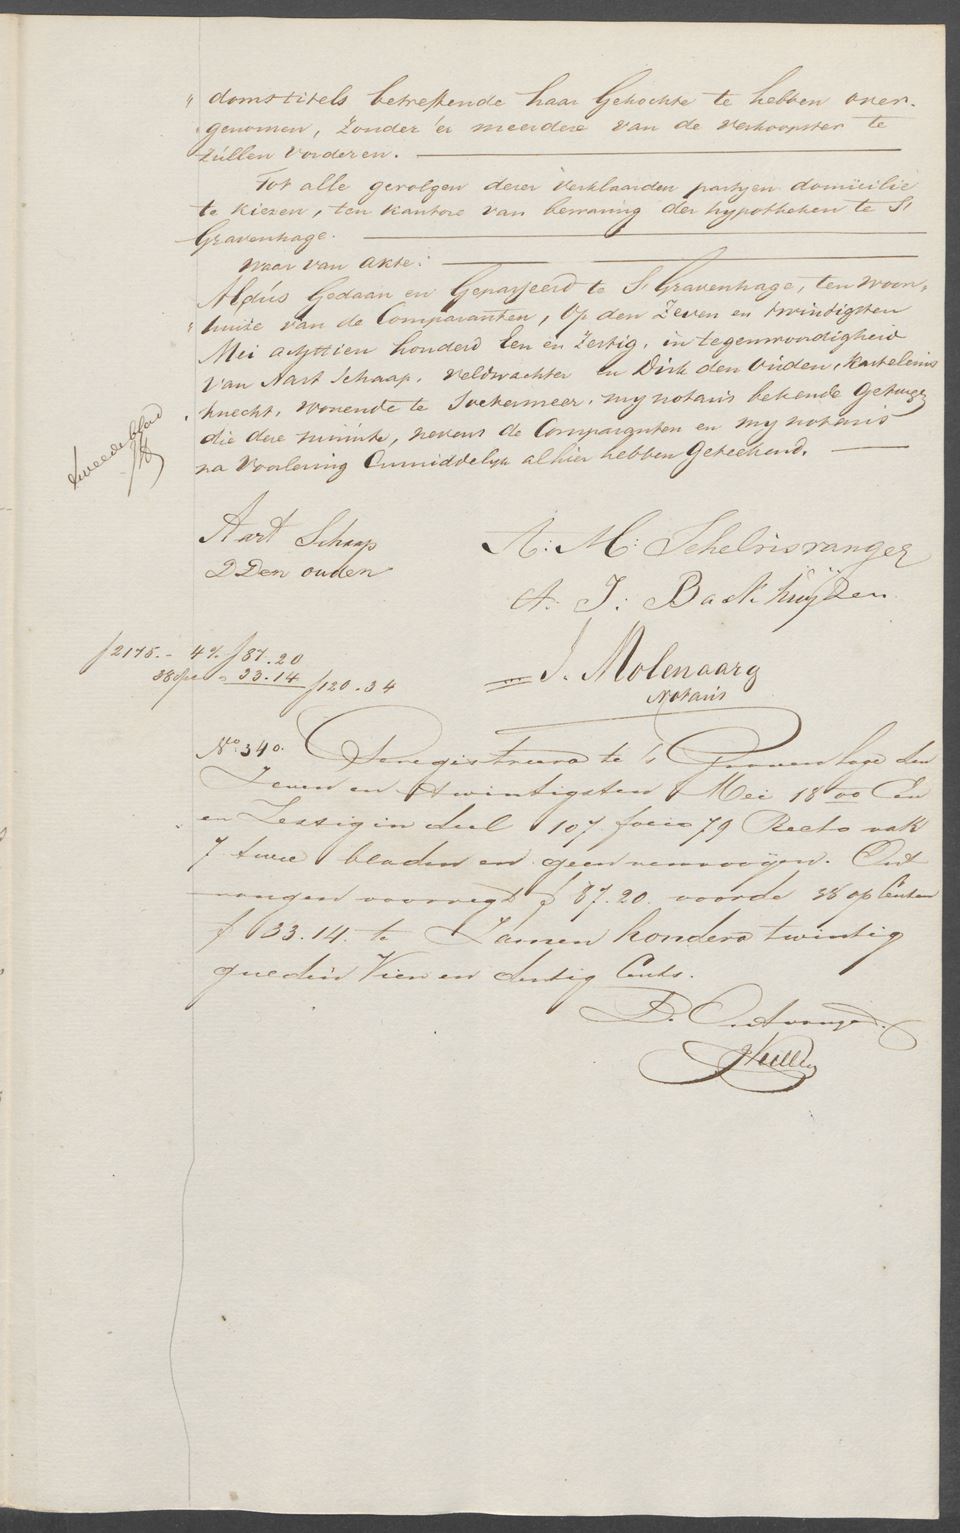 „ domstitels betreffende haar Gekochte te hebben over-
genomen, zonder er meerdere van de verkoopster te
zullen vorderen.
Tot alle gevolgen dezer verklaarden partyen domicilie
te kiezen, ten kantore van bewaring der hypotheken te S
Gravenhage.
waar van akte:
Aldus Gedaan en Gepasseerd te S Gravenhage, ten woon-
„ huize van de Comparanten, op den Zeven en twintigsten
Mei achttien honderd Een en Zestig, in tegenwoordigheid
van Aart Schaap, veldwachter en Dirk den Ouden, Kasteleins
knecht, wonende te Soetermeer, my notaris bekende Getuigen
die deze minute, nevens de Comparanten en my notaris
na Voorlezing Onmiddelyk alhier hebben Geteekend.
tweede blad
Aart Schaap
D Den ouden
A: M: Schelvisvanger
A: J: Backhuÿzen
f2175.- 4% f87.20
38 opc " 33.14 f120.34
J. Molenaar
Notaris
No. 340. Geregistreerd te 's Gravenhage den
Zeven en twintigsten Mei 1800 Een
en Zestig in deel 107 folio 79 Recto vak
7 twee bladen en geen renvooÿen. Ont
vangen voor regt f 87.20. voor de 38 op Centen
f 33.14. te Zamen honderd twintig
gulden Vier en dertig Cents.
D. Ontvanger.